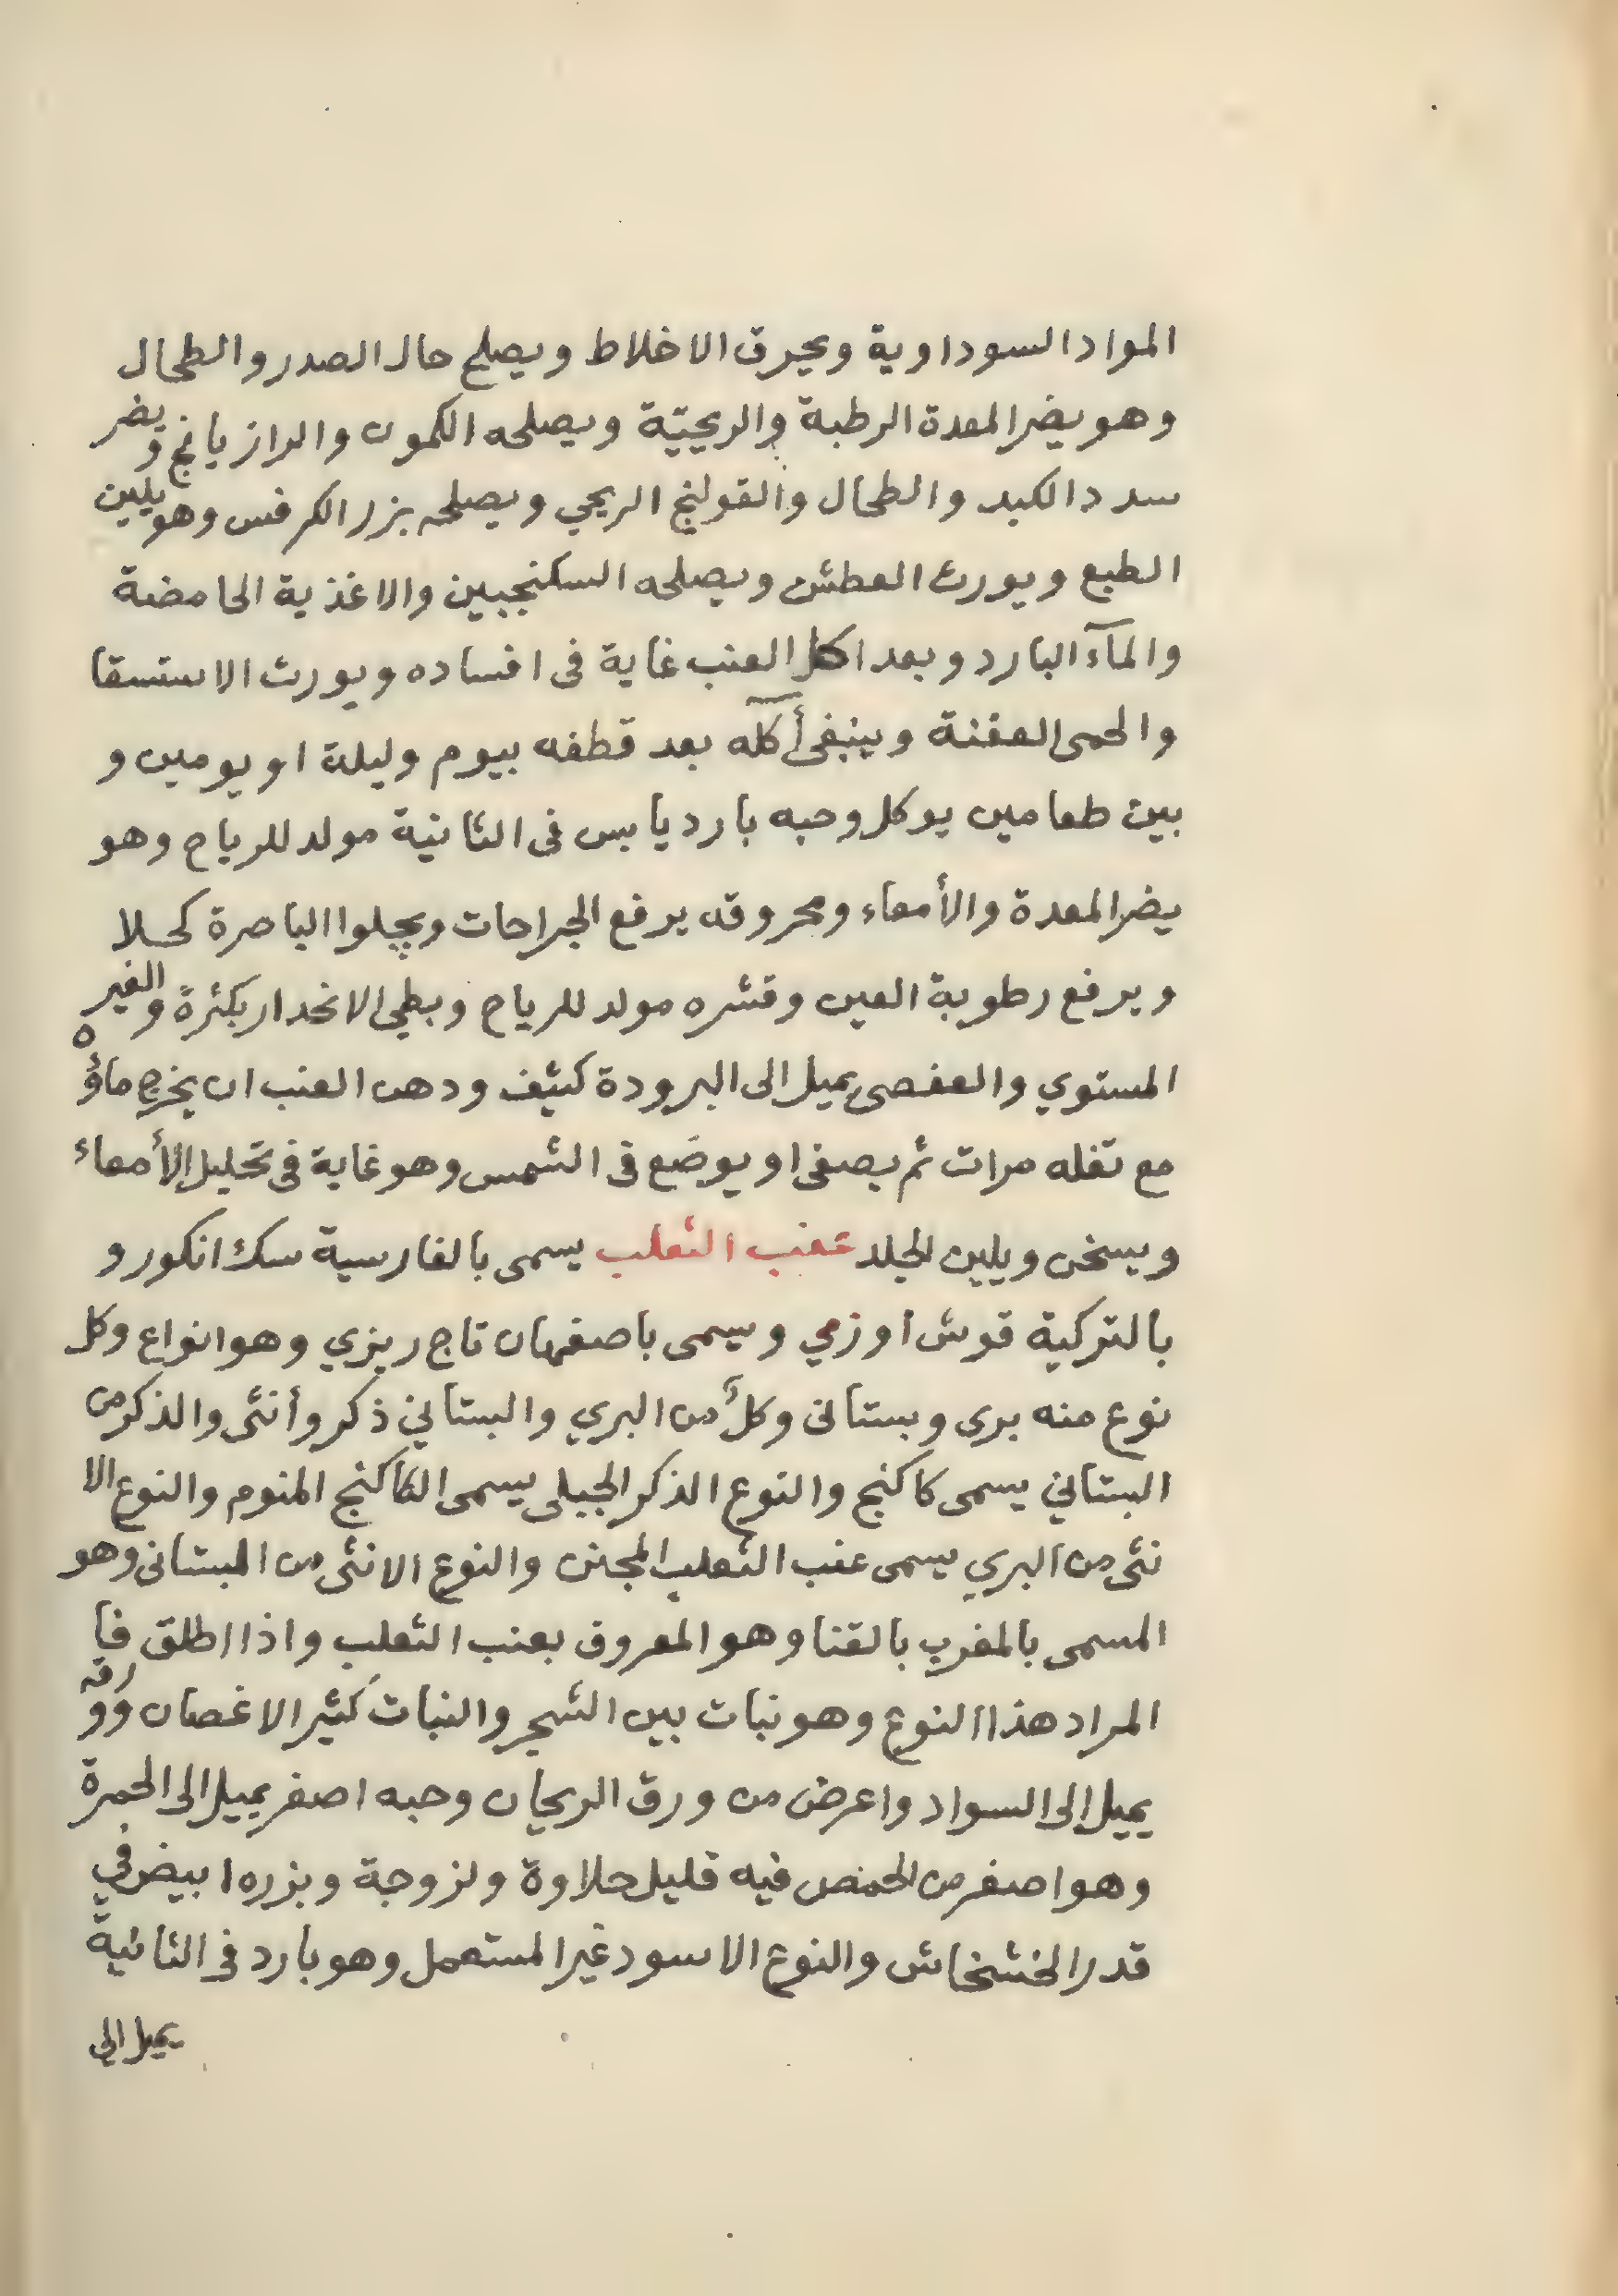 المواد السوداوية ويحرق الاخلاط ويصلح حال الصدر والطحال
وهو يضر المعدة الرطبة والريحيّة ويصلحه الكمون والرازيانج ويضر
سدد الكبد والطحال والقولنج الريحي ويصلحه بزر الكرفس وهو يلين
الطبع ويورث العطش ويصلحه السكنجبين والاغذية الحامضة
والمآء البارد وبعد اكل العنب غاية فى افساده ويورث الاستسقا
والحمى العفنة وينبغى أكله بعد قطفه بيوم وليلة او يومين و
بين طعامين يوكل وحبه بارد يابس فى الثانية مولد للرياح وهو
يضر المعدة والأمعاء ومحروقه يرفع الجراحات ويجلوا الباصرة كحلا
ويرفع رطوبة العين وقشره مولد للرياح وبطي الانحدار بكثرة والغير
المستوي والعفصى يميل الى البرودة كثيف ودهن العنب ان يخرج ماؤه
مع تفله مرات ثم يصفى او يوضع فى الشمس وهو غاية فى تحليل الأمعاء
ويسخن ويلين الجلد عنب الثعلب يسمى بالفارسية سك انكور و
بالتركية قوش اوزمي ويسمى باصفهان تاج ريزي وهو انواع وكل
نوع منه برى وبستانى وكلٌ من البري والبستاني ذكر وأنثى والذكر من
البستاني يسمى كاكنج والنوع الذكر الجبلى يسمى الكاكنج المنوم والنوع الا
نثى من البري يسمى عنب الثعلب المجنن والنوع الانثى من البستانى وهو
المسمى بالمغرب بالقنا وهو المعروف بعنب الثعلب واذا اطلق فا
المراد هذا النوع وهو نبات بين الشجر والنبات كثير الاغصان وورقه
يميل الى السواد واعرض من ورق الريحان وحبه اصفر يميل الى الحمرة
وهو اصغر من الحمص فيه قليل حلاوة ولزوجة وبزره ابيض في
قدر الخشخاش والنوع الاسود غير المستعمل وهو بارد فى الثانية
يميل الى